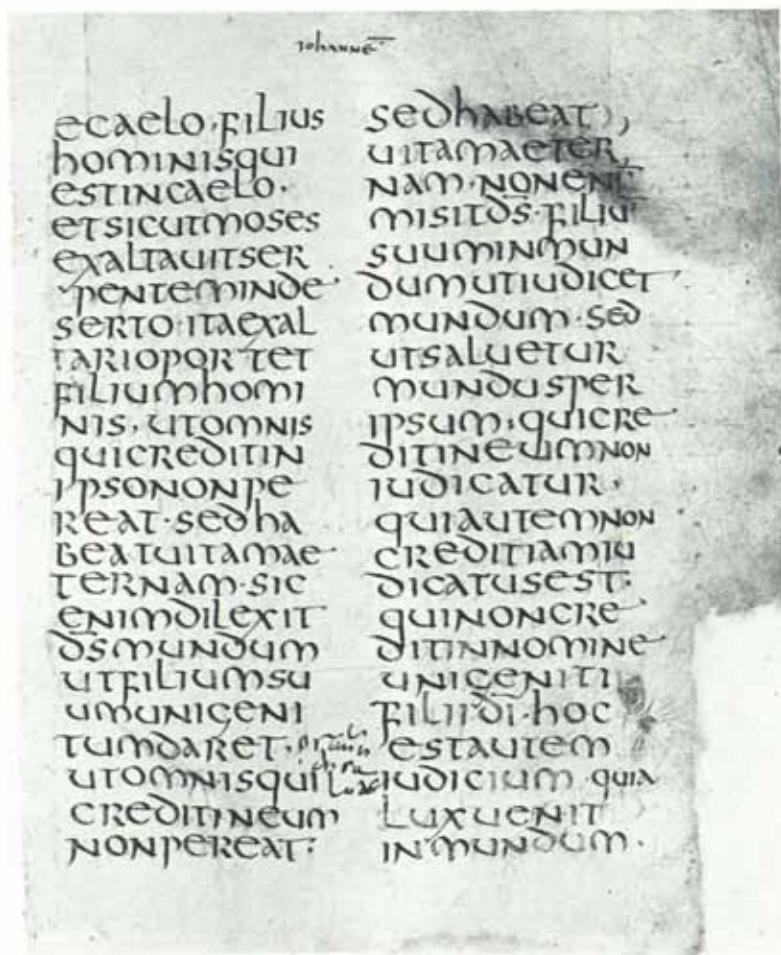 iohanne̅
ecaelo·filius
hominisqui
estincaelo·
etsicutmoses
exaltauitser
penteminde
serto·itaexal
tarioportet
filiumhomi
nis·utomnis
quicreditin
ipsononpe
reat·sedha
beatuitamae
ternam·sic
enimdilexit
d̅s̅mundum
utfiliumsu
umunigeni
tumdaret·
utomnisqui
creditineum
nonpereat:
sedhabeat
uitamaeter
nam·noneni̅
misitd̅s̅·filiu̅
suuminmun
dumutiudicet
mundum·sed
utsaluetur
mundusper
ipsum:quicre
ditineumnon
iudicatur·
quiautemnon
creditiamiu
dicatusest:
quinoncre
ditinnomine
unigeniti
filiid̅i̅·hoc
estautem
iudicium·quia
luxuenit
inmundum·